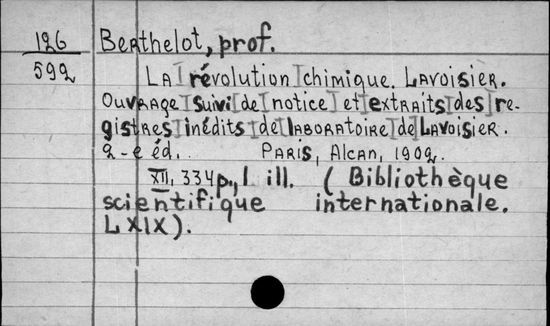 126
592
Berthelot, prof.
La révolution chimique. Lavoisier.
Ouvrage suivi de notice et extraits des re-
gistres inédits de laboratoire de Lavoisier.
2-e éd. Paris, Alcan, 1902.
XII, 334p., 1 ill. (Bibliothèque
scientifique internationale.
LXIX).